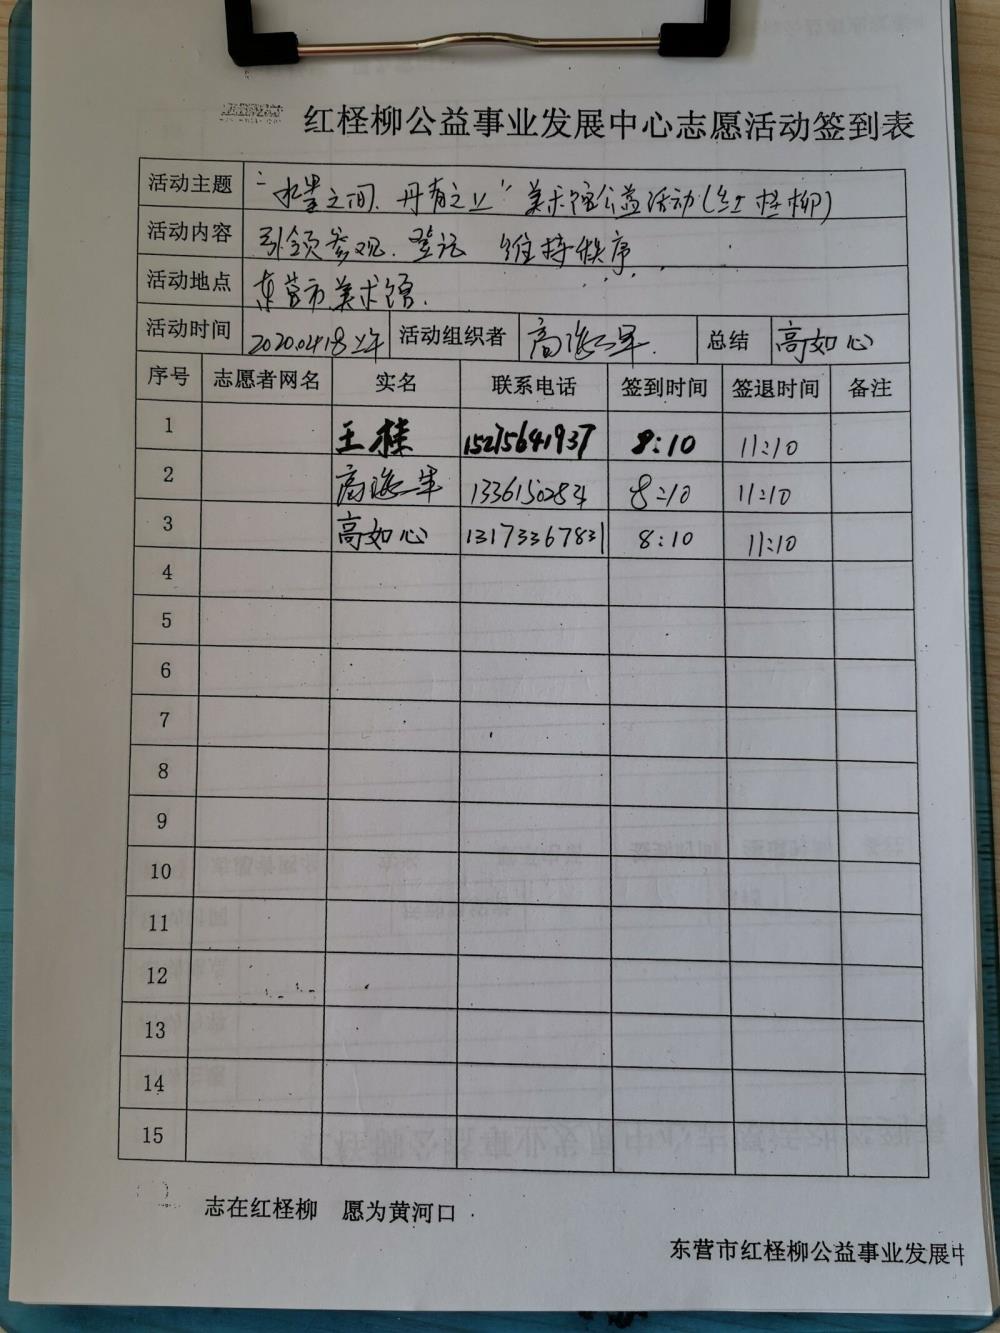 红柽柳公益事业发展中心志愿活动签到表
活动主题 “水墨之间、丹青之上”美术馆公益活动(红柽柳)
活动内容 引领参观、登记 维持秩序
活动地点 东营市美术馆.
活动时间 2020.04.18上午 活动组织者 高海军. 总结 高如心
序号 志愿者网名 实名 联系电话 签到时间 签退时间 备注
1 王桂 15275641937 8:10 11:10
2 高海军 1336150283 8:10 11:10
3 高如心 13173367831 8:10 11:10
4
5
6
7
8
9
10
11
12
13
14
15
志在红柽柳 愿为黄河口
东营市红柽柳公益事业发展中